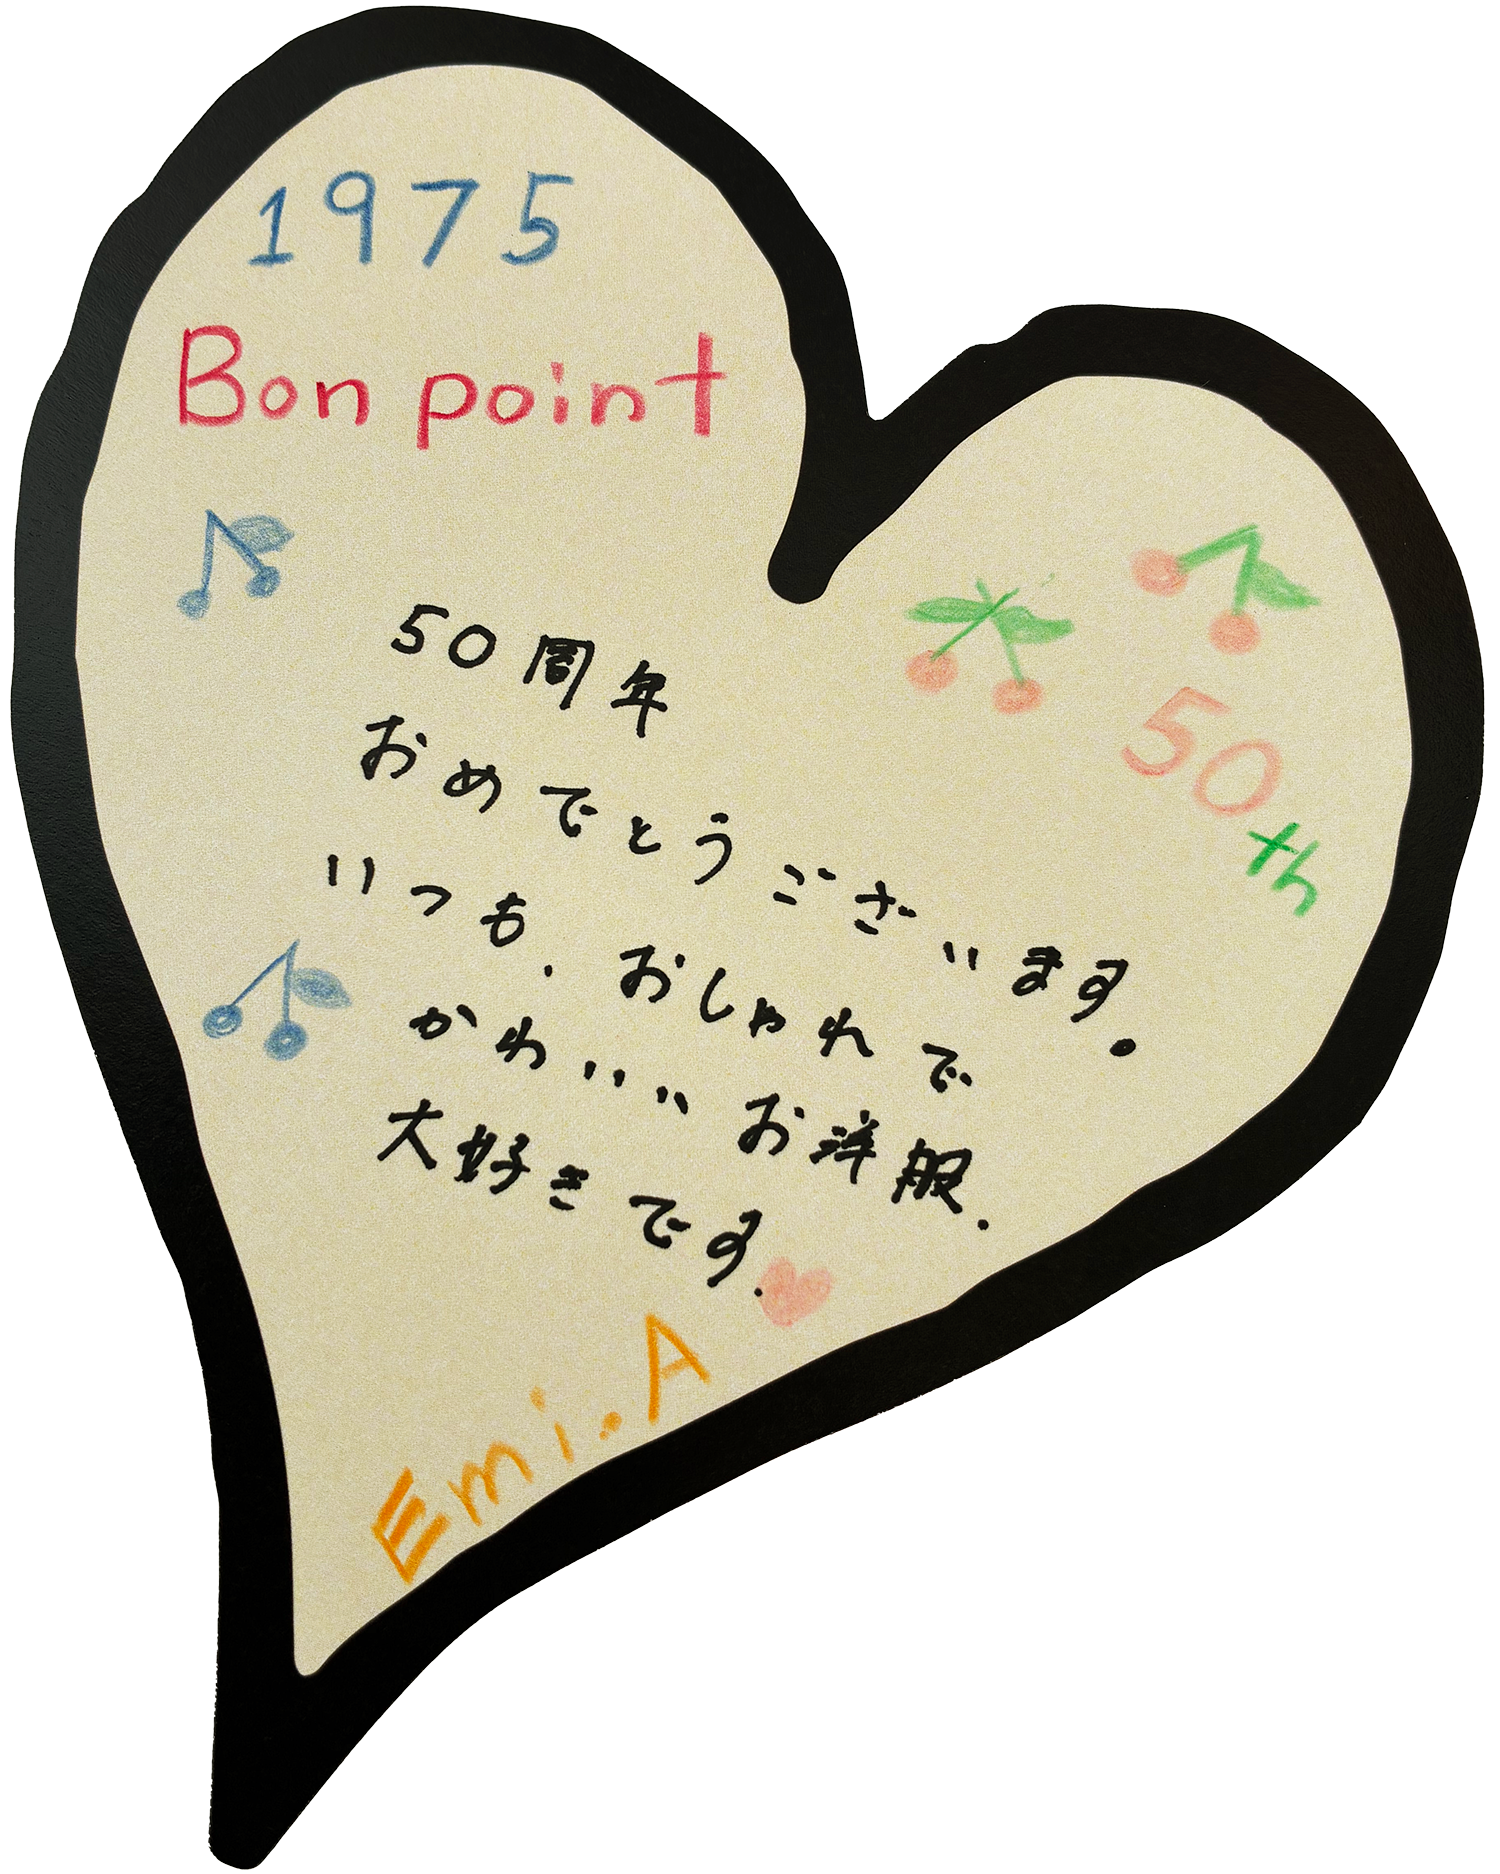 1975
Bon point
50周年
おめでとうございます。
いつも、おしゃれで
かわいい お洋服、
大好きです。
50th
Emi.A